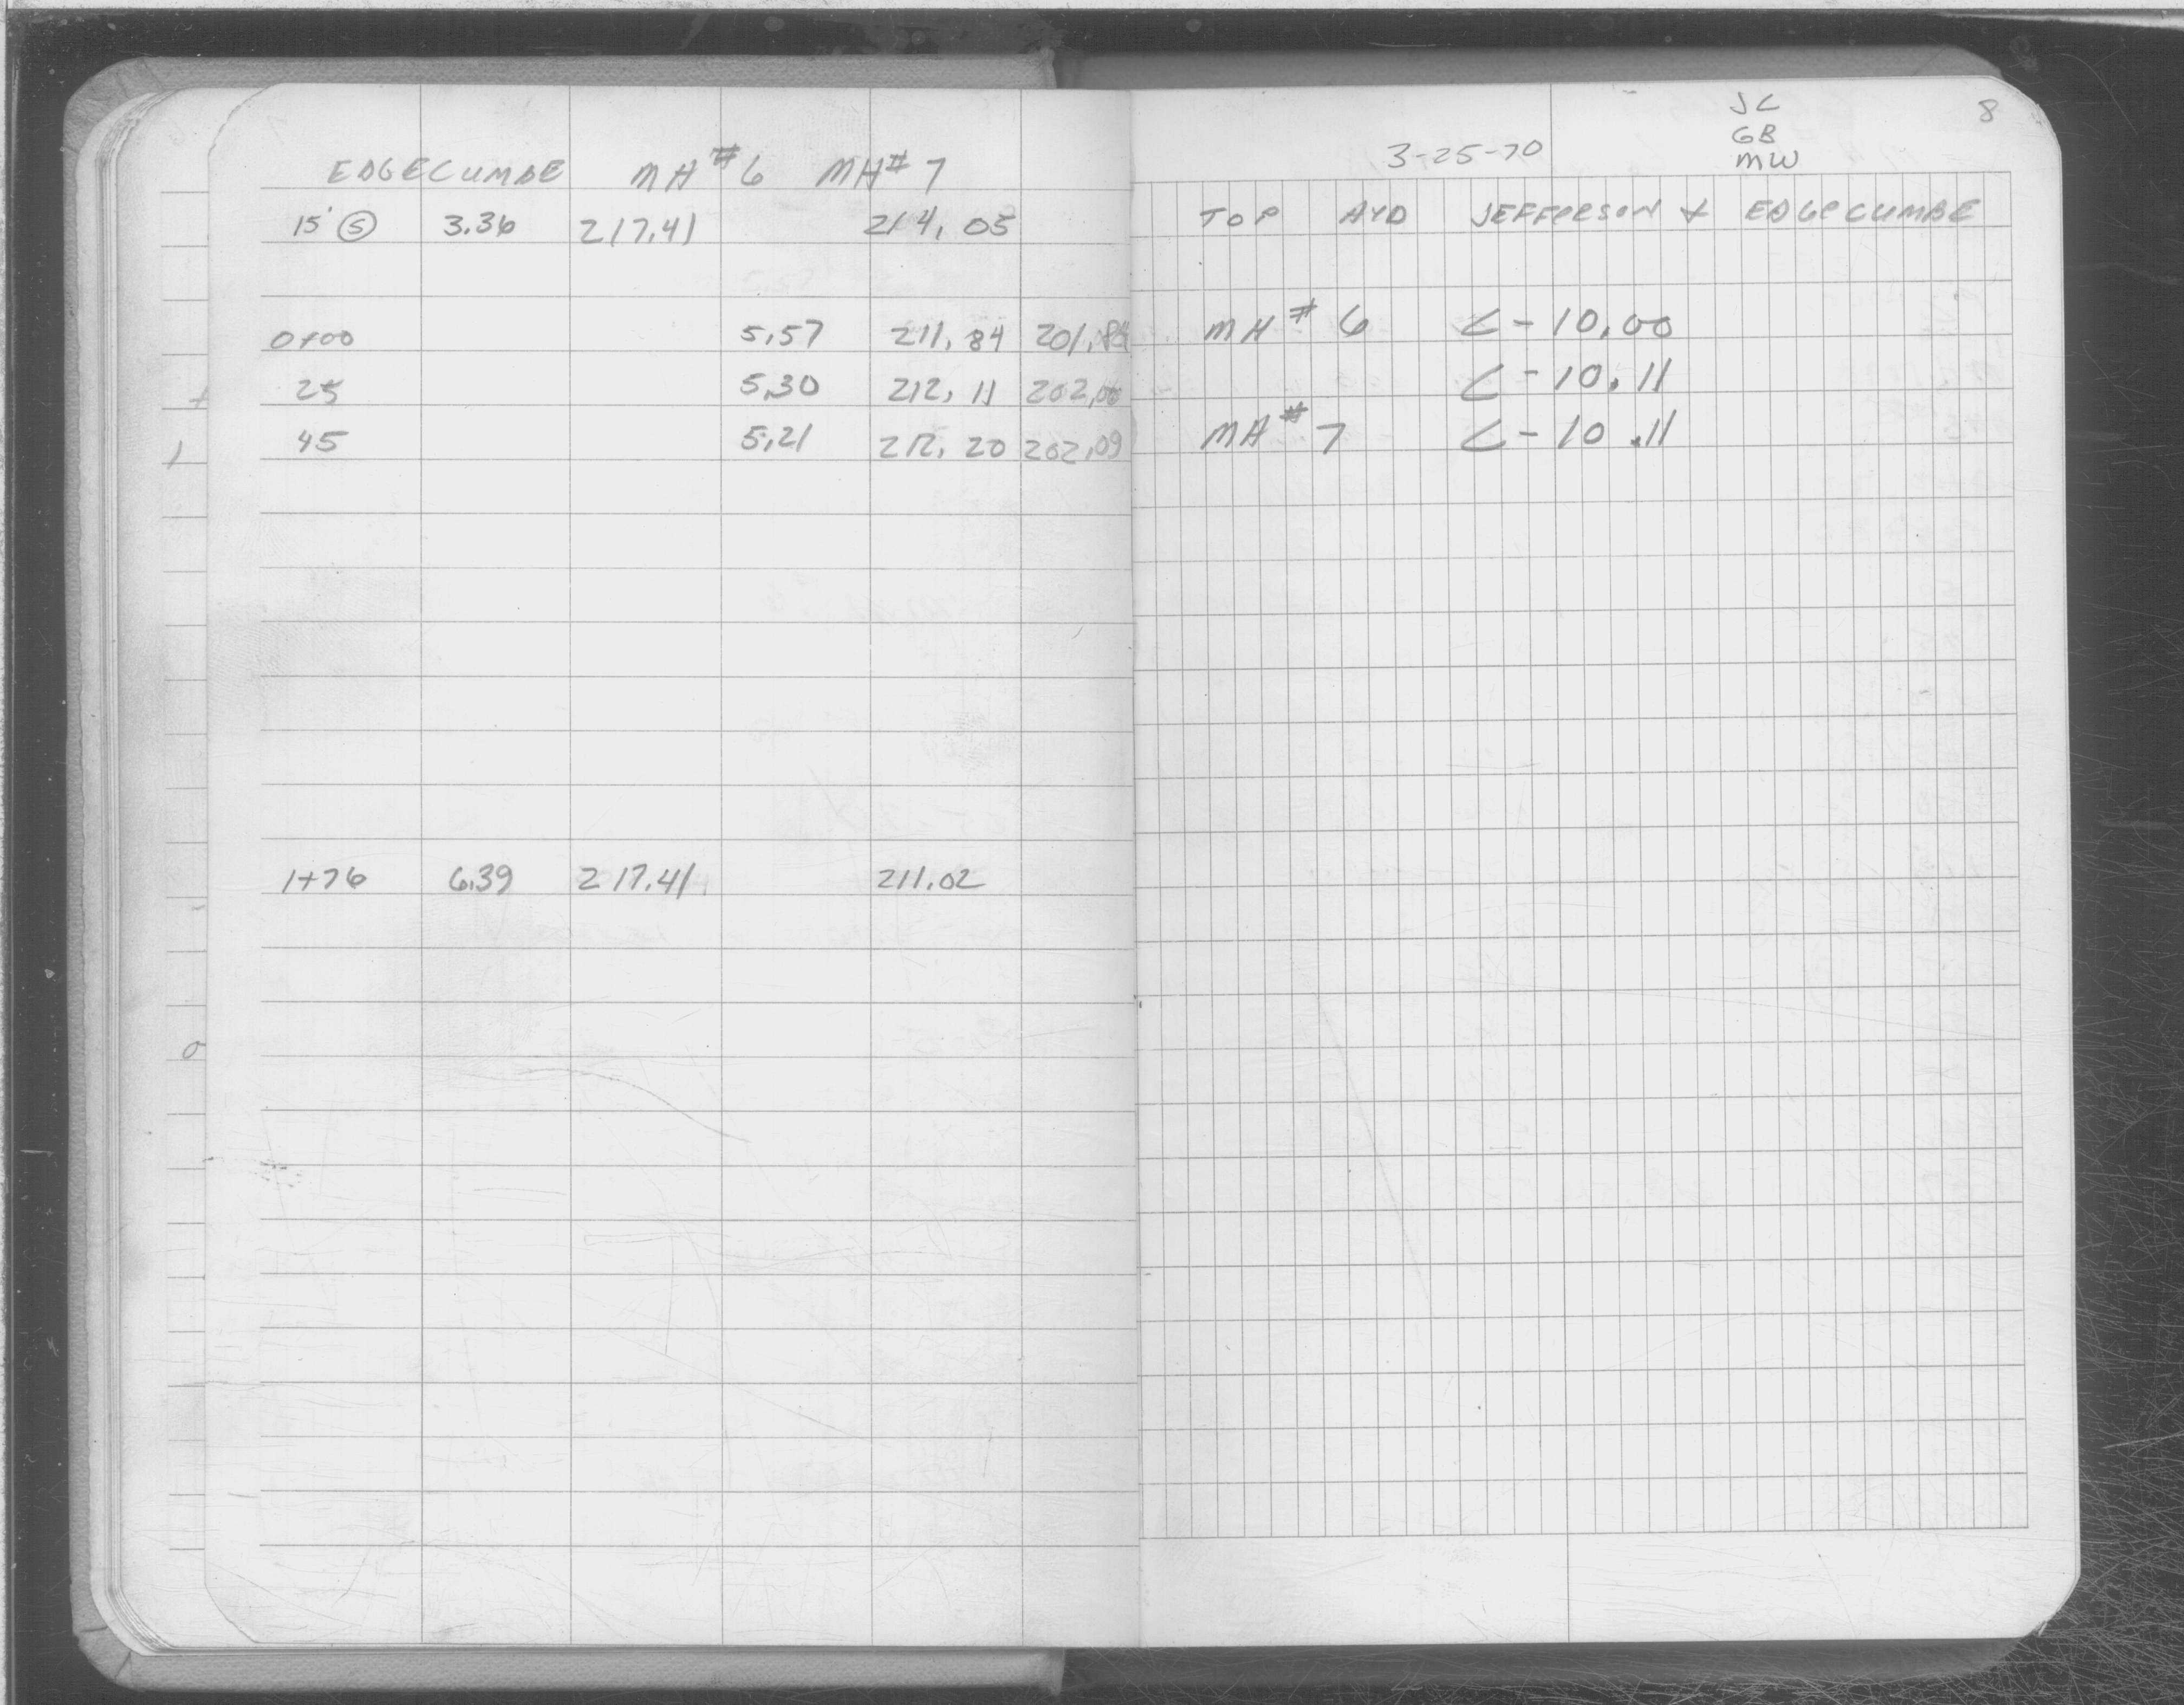 EDGECUMBE MH #6 MH #7
15' Ⓢ 3.36 217.41 214.05
0+00 5.57 211.84 201.84
25 5.30 212.11 202.00
45 5.21 212.20 202.09
1+76 6.39 217.41 211.02
8
JC
GB
3-25-70 MW
TOP HYD JEFFERSON & EDGECUMBE
MH #6 C-10.00
C-10.11
MH #7 C-10.11